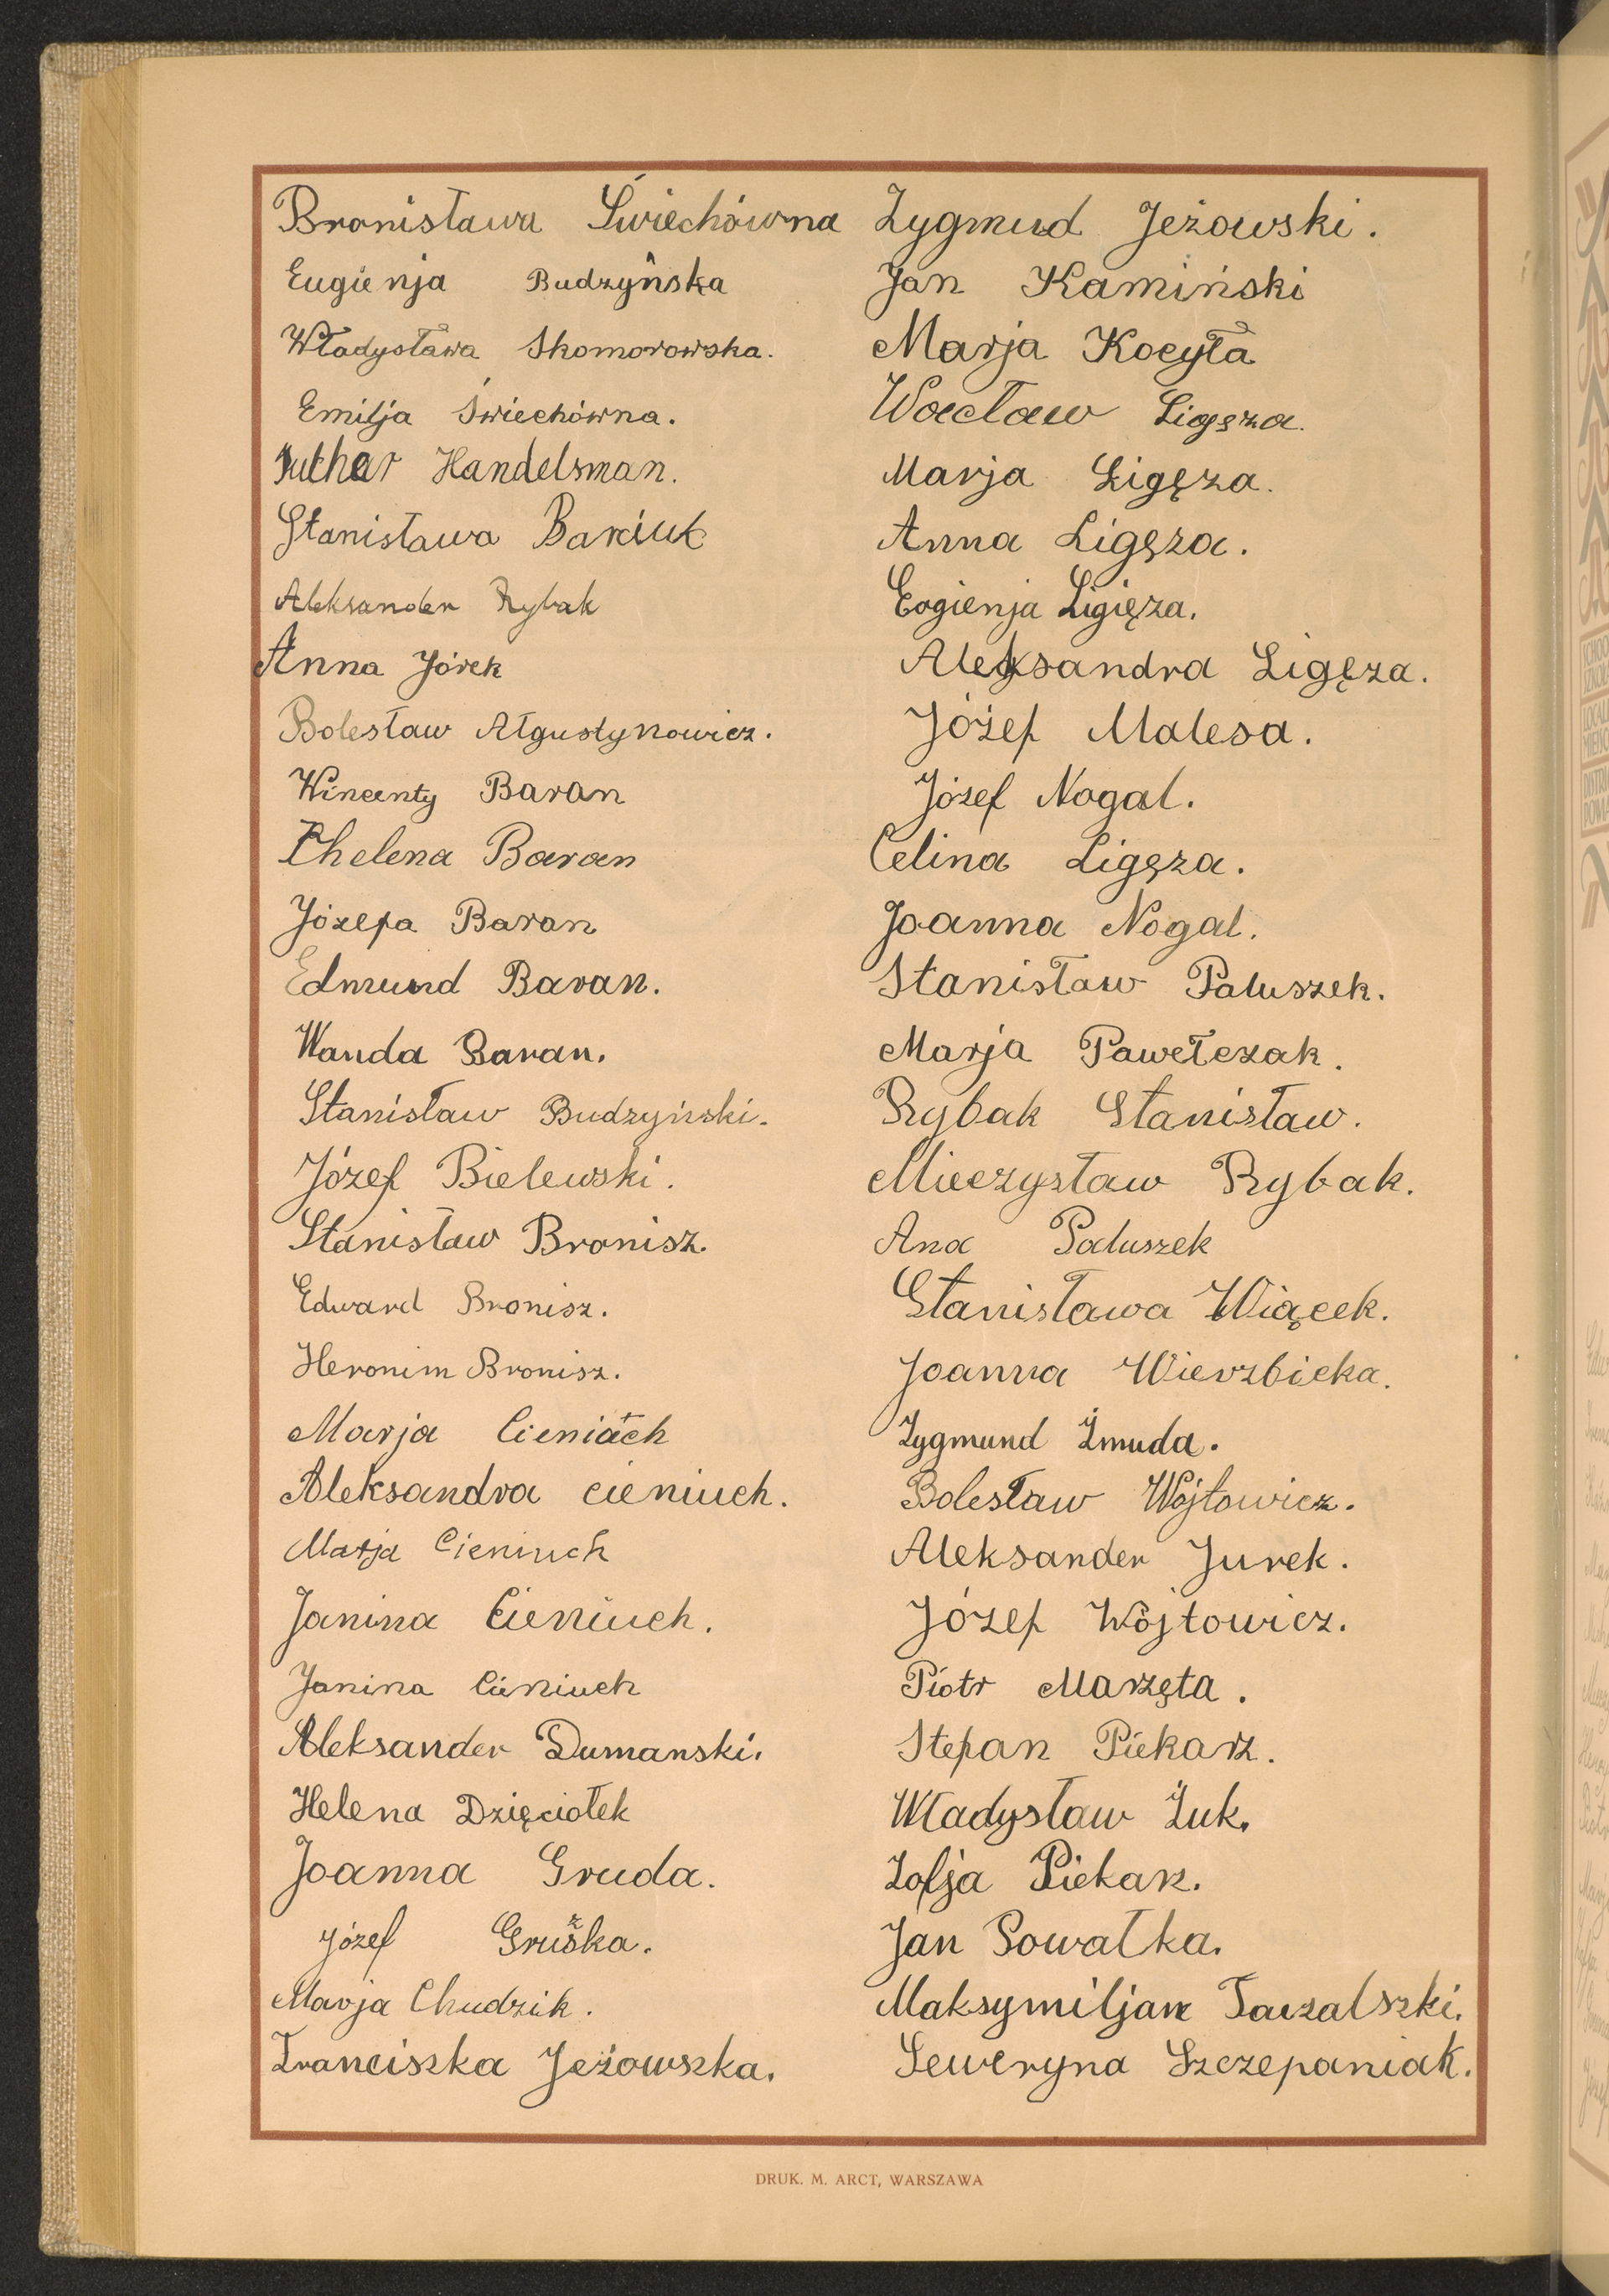 Bronisława Świechówna
Eugienja Budzyńska
Władysława Skomorowska.
Emilja Świechówna.
Ruther Handelsman.
Stanisława Barciuk
Aleksander Rybak
Anna Jórek
Bolesław Ałgustynowicz.
Wincenty Baran
Chelena Baran
Józefa Baran
Edmund Baran.
Wanda Baran.
Stanisław Budzyński.
Józef Bielewski.
Stanisław Bronisz.
Edward Bronisz.
Heronim Bronisz.
Marja Cieniuch
Aleksandra Cieniuch.
Marja Cieniuch
Janina Cieniuch.
Janina Cieniuch
Aleksander Dumanski.
Helena Dzięciołek
Joanna Gruda.
Józef Gruszka.
Marja Chudzik.
Franciszka Jeżowszka.
Zygmud Jeżowski.
Jan Kamiński
Marja Kocyła
Wacław Ligęza.
Marja Ligęza.
Anna Ligęza.
Eogienja Ligięza.
Aleksandra Ligęza.
Józef Malesa.
Józef Nogal.
Celina Ligęza.
Joanna Nogal.
Stanisław Paluszek.
Marja Pawełczak.
Rybak Stanisław.
Mieczysław Rybak.
Ana Paluszek
Stanisława Wiącek.
Joanna Wierzbicka.
Zygmund Żmuda.
Bolesław Wójtowicz.
Aleksander Jurek.
Józef Wójtowicz.
Piotr Marzęta.
Stefan Piekarz.
Władysław Żuk.
Zofja Piekarz.
Jan Sowałka.
Maksymiljan
Seweryna Szczepaniak.
DRUK. M. ARCT, WARSZAWA